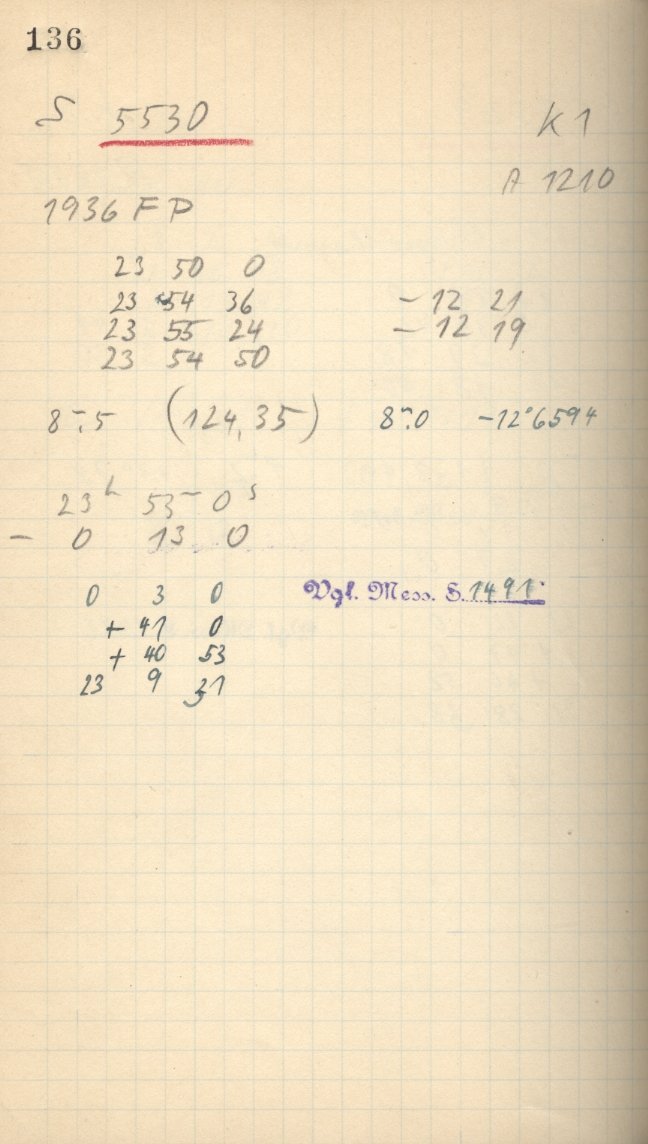 136
S 5530 K 1
A 1210
1936 FP
23 50 0
23 54 36 - 12 21
23 55 24 - 12 19
23 54 50
8ᵐ.5 (124,35) 8ᵐ.0 -12°6594
23ʰ 53ᵐ 0ˢ
- 0 13 0
0 3 0 Vgl. Mess. S. 1491
+ 41 0
+ 40 53
23 9 31